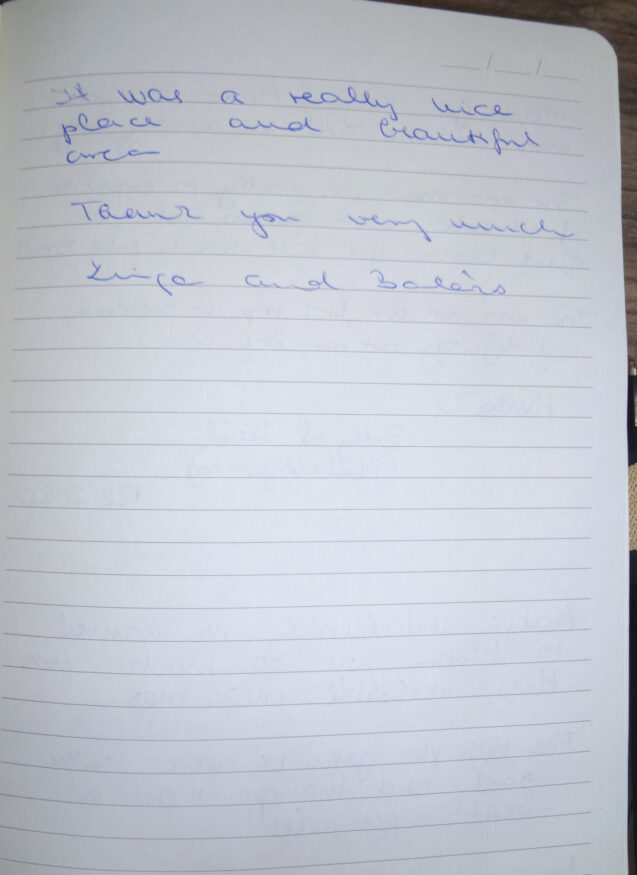 It was a really nice
place and beautiful
area
Thank you very much
and Balázs